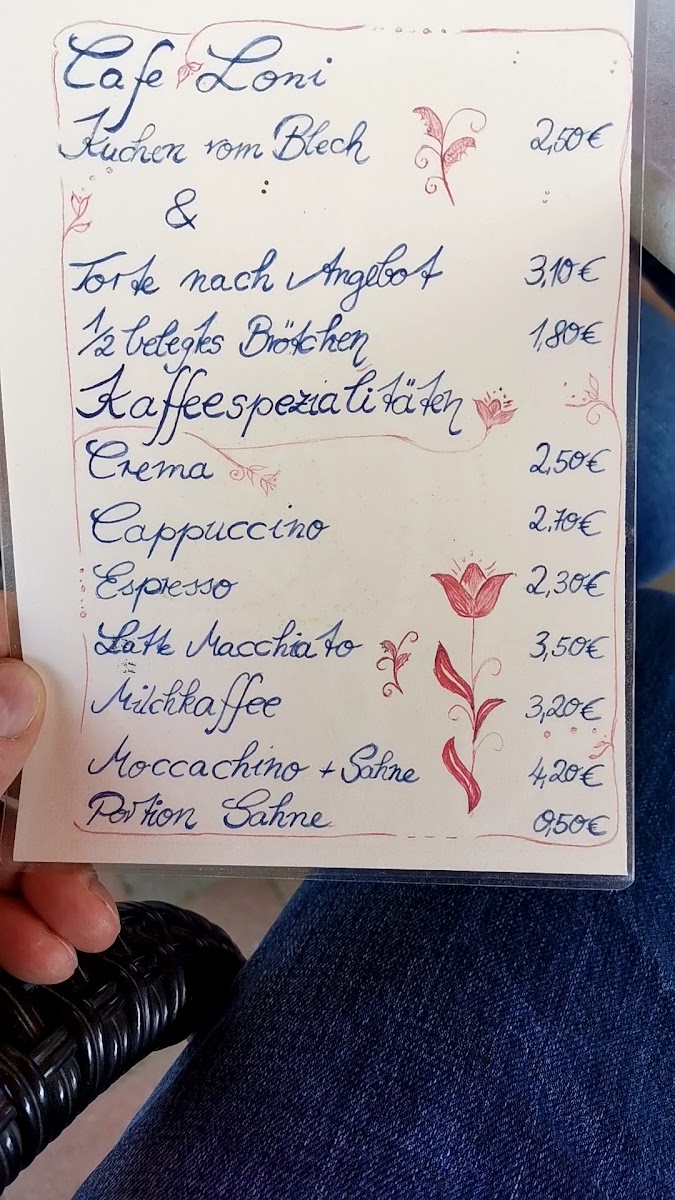 Cafe Loni
Kuchen vom Blech 2,50€
&
Torte nach Angebot 3,10€
1/2 belegtes Brötchen 1,80€
Kaffeespezialitäten
Crema 2,50€
Cappuccino 2,70€
Espresso 2,30€
Latte Macchiato 3,50€
Milchkaffee 3,20€
Moccachino + Sahne 4,20€
Portion Sahne 0,50€